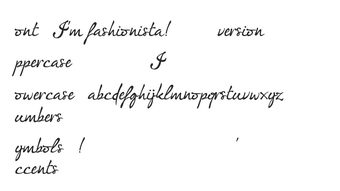 ont I'm fashionista! version
ppercase I
owercase abcdefghijklmnopqrstuvwxyz
umbers
ymbols ! '
ccents